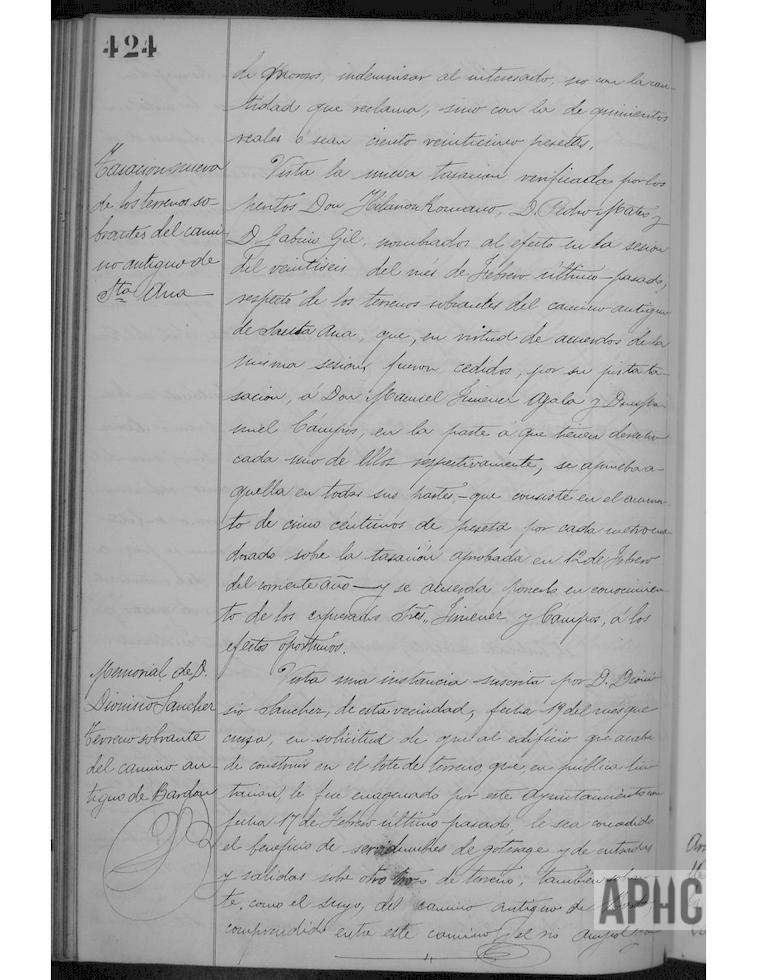 424
de Moroso, indemnizar al interesado, no con la can-
tidad que reclama, sino con la de quinientos
reales ó sean ciento veinticinco pesetas.
Tasacion nueva
de los terrenos so-
brantes del cami-
no antiguo de
Sta Ana
Vista la nueva tasacion verificada por los
peritos Don Hilarion Romano, D. Pedro Mateo y
D. Gabino Gil, nombrados al efecto en la sesion
del veintiseis del mes de Febrero último pasado,
respecto de los terrenos sobrantes del camino antiguo
de Santa Ana, que, en virtud de acuerdos de la
misma sesion, fueron cedidos, por su justa ta-
sacion, á Don Manuel Jimenez Ayala y Don
Campos, en la parte á que tienen derecho
cada uno de ellos respectivamente, se aprueba a-
quella en todas sus partes,- que consiste en el aumen-
to de cinco céntimos de peseta por cada metro cua-
drado sobre la tasación aprobada en 12 de Febrero
del corriente año - y se acuerda ponerlo en conocimien-
to de los expresados Sres. Jimenez y Campos, á los
efectos oportunos.
Memorial de D.
Dionisio Sanchez
Terreno sobrante
del camino an-
tiguo de Bardon
Vista una instancia suscrita por D. Dioni-
sio Sanchez, de esta vecindad, fecha 19 del mes que
cursa, en solicitud de que al edificio que acaba
de construir en el lote de terreno que, en pública lici-
tacion, le fue enagenado por este Ayuntamiento con
fecha 17 de Febrero último pasado, le sea concedido
el beneficio de servidumbres de goterage y de entradas
y salidas sobre otro trozo de terreno, tambien sobran-
te, como el suyo, del camino antiguo de
comprendido entre este camino y el rio
APHC